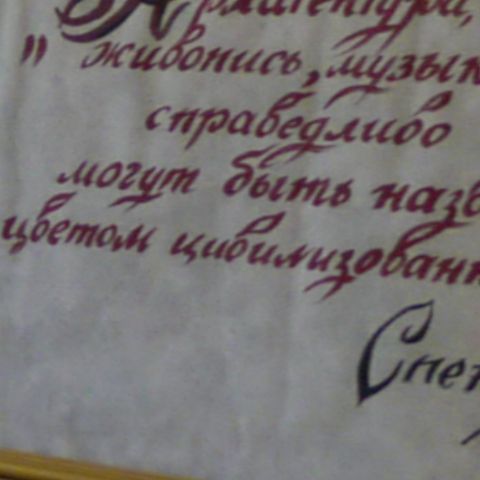 " живопись, музык
справедливо
могут быть назв
цветом цивилизованн
Спен